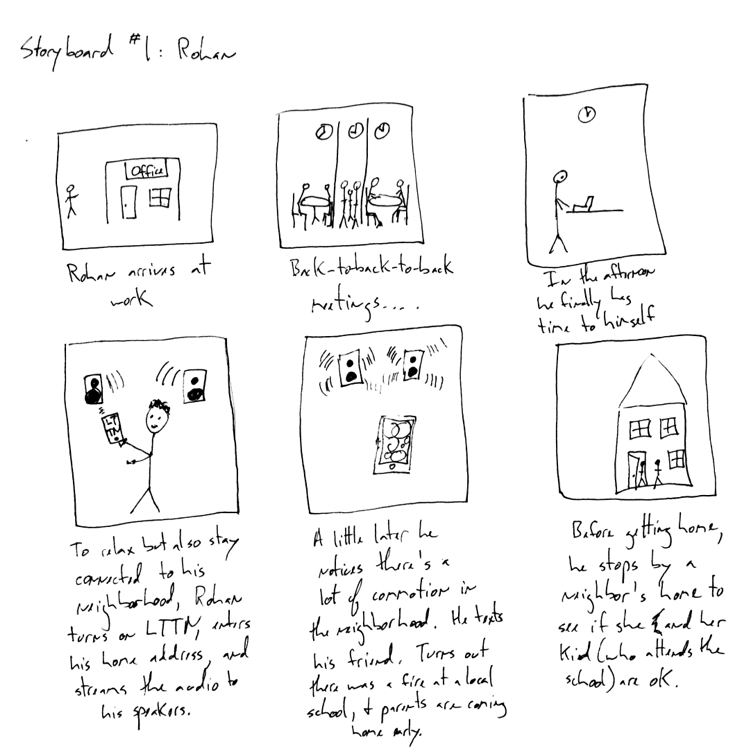 Storyboard #1: Rohan
Office
Rohan arrives at
work
Back-to-back-to-back
meetings....
In the afternoon
he finally has
time to himself
LT
TN
To relax but also stay
connected to his
neighborhood, Rohan
turns on LTTN, enters
his home address, and
streams the audio to
his speakers.
A little later he
notices there's a
lot of commotion in
the neighborhood. He texts
his friend. Turns out
there was a fire at a local
school, + parents are coming
home early.
Before getting home,
he stops by a
neighbor's home to
see if she and her
kid (who attends the
school) are OK.